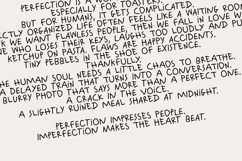 PERFECTION IS A
ESPECIALLY FOR TOASTERS.
BUT FOR HUMANS, IT GETS COMPLICATED.
PERFECTLY ORGANIZED LIFE OFTEN FEELS LIKE A WAITING ROOM
WE WANT FLAWLESS PEOPLE, THEN WE FALL IN LOVE
WHO LOSES THEIR KEYS, LAUGHS TOO LOUDLY AND
KETCHUP ON PASTA. FLAWS ARE HAPPY ACCIDENTS.
TINY PEBBLES IN THE SHOE OF EXISTENCE.
THANKFULLY.
THE HUMAN SOUL NEEDS A LITTLE CHAOS TO BREATHE.
A DELAYED TRAIN THAT TURNS INTO A CONVERSATION.
BLURRY PHOTO THAT SAYS MORE THAN A PERFECT ONE.
A CRACK IN THE VOICE.
A SLIGHTLY RUINED MEAL SHARED AT MIDNIGHT.
PERFECTION IMPRESSES PEOPLE.
IMPERFECTION MAKES THE HEART BEAT.